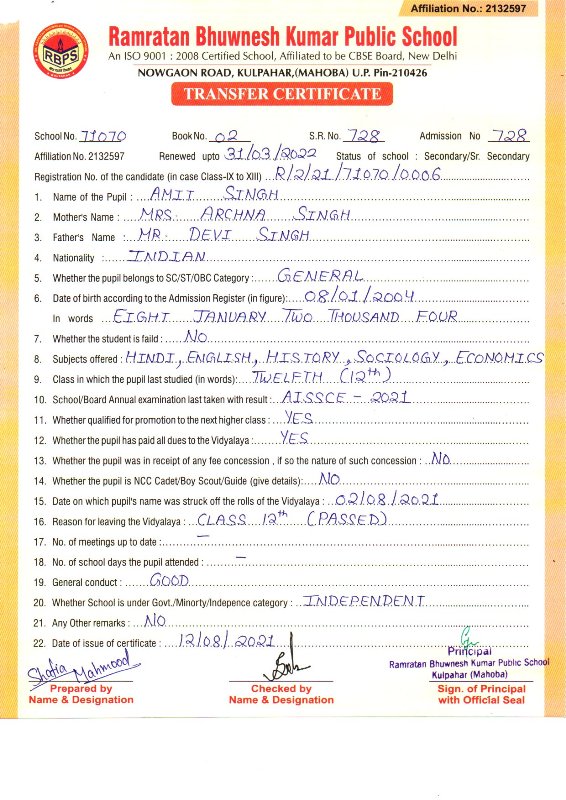 Affiliation No.: 2132597
RBPS
Ramratan Bhuwnesh Kumar Public School
An ISO 9001 : 2008 Certified School, Affiliated to be CBSE Board, New Delhi
NOWGAON ROAD, KULPAHAR,(MAHOBA) U.P. Pin-210426
TRANSFER CERTIFICATE
School No. 71070 Book No. 02 S.R. No. 728 Admission No 728
Affiliation No. 2132597 Renewed upto 31/03/2022 Status of school : Secondary/Sr. Secondary
Registration No. of the candidate (in case Class-IX to XII) R/2/21/71070/0006
1. Name of the Pupil : AMIT SINGH
2. Mother's Name : MRS. ARCHNA SINGH
3. Father's Name : MR. DEVI SINGH
4. Nationality : INDIAN
5. Whether the pupil belongs to SC/ST/OBC Category : GENERAL
6. Date of birth according to the Admission Register (in figure): 08/01/2004
In words EIGHT JANUARY TWO THOUSAND FOUR
7. Whether the student is faild : NO
8. Subjects offered : HINDI, ENGLISH, HISTORY, SOCIOLOGY, ECONOMICS
9. Class in which the pupil last studied (in words): TWELFTH (12th)
10. School/Board Annual examination last taken with result : AISSCE - 2021
11. Whether qualified for promotion to the next higher class : YES
12. Whether the pupil has paid all dues to the Vidyalaya : YES
13. Whether the pupil was in receipt of any fee concession , if so the nature of such concession : NO
14. Whether the pupil is NCC Cadet/Boy Scout/Guide (give details): NO
15. Date on which pupil's name was struck off the rolls of the Vidyalaya : 02/08/2021
16. Reason for leaving the Vidyalaya : CLASS 12th (PASSED)
17. No. of meetings up to date : —
18. No. of school days the pupil attended : —
19. General conduct : GOOD
20. Whether School is under Govt./Minorty/Indepence category : INDEPENDENT
21. Any Other remarks : NO
22. Date of issue of certificate : 12/08/2021
Shafia Mahmood
Principal
Ramratan Bhuwnesh Kumar Public School
Kulpahar (Mahoba)
Prepared by Checked by Sign. of Principal
Name & Designation Name & Designation with Official Seal